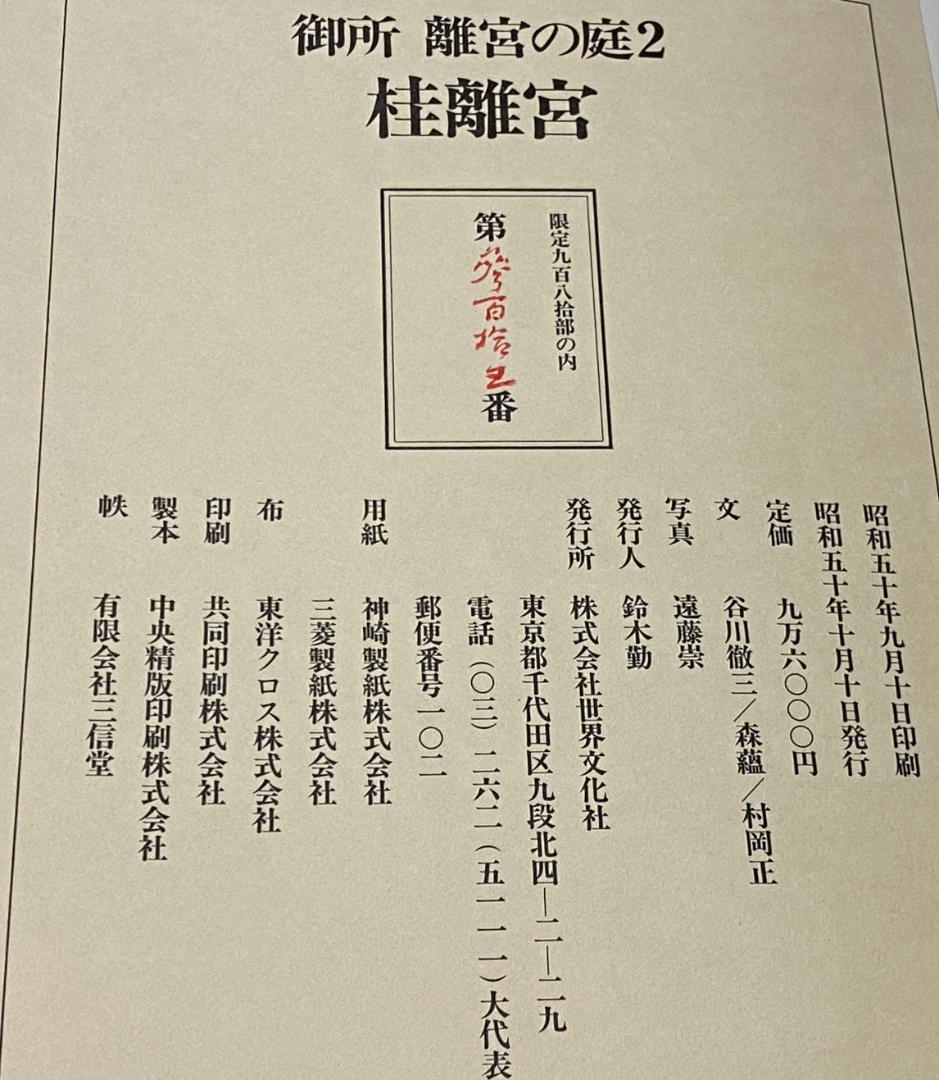 御所 離宮の庭2
桂離宮
限定九百八拾部の内
第參百拾五番
昭和五十年九月十日印刷
昭和五十年十月十日発行
定価 九万六〇〇〇円
文 谷川徹三／森蘊／村岡正
写真 遠藤崇
発行人 鈴木勤
発行所 株式会社世界文化社
東京都千代田区九段北四―二―二九
電話(〇三)二六二(五一一一)大代表
郵便番号一〇二
用紙 神崎製紙株式会社
三菱製紙株式会社
布 東洋クロス株式会社
印刷 共同印刷株式会社
製本 中央精版印刷株式会社
帙 有限会社三信堂